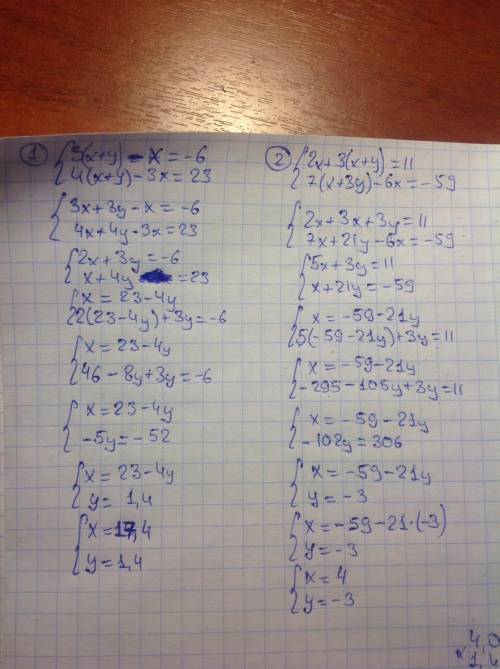 1
3(x+y) - x = -6
4(x+y) - 3x = 23
3x+3y-x = -6
4x+4y-3x = 23
2x+3y = -6
x+4y = 23
x = 23-4y
2(23-4y)+3y = -6
x = 23-4y
46-8y+3y = -6
x = 23-4y
-5y = -52
x = 23-4y
y = 1,4
x = 17,4
y = 1,4
2
2x+3(x+y) = 11
7(x+3y)-6x = -59
2x+3x+3y = 11
7x+21y-6x = -59
5x+3y = 11
x+21y = -59
x = -59-21y
5(-59-21y)+3y = 11
x = -59-21y
-295-105y+3y = 11
x = -59-21y
-102y = 306
x = -59-21y
y = -3
x = -59-21·(-3)
y = -3
x = 4
y = -3
4,0
x 1,4